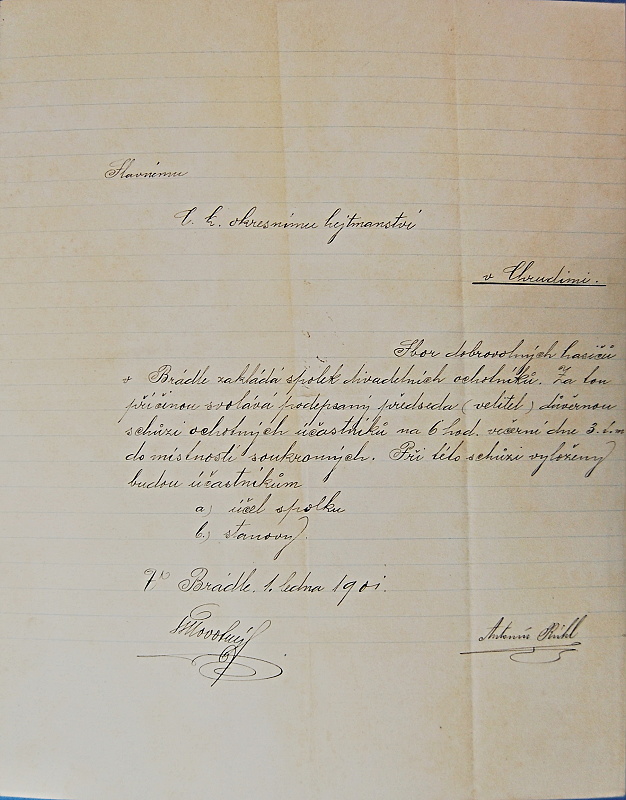 Slavnému
C. k. okresnímu hejtmanství
v Chrudimi.
Sbor dobrovolných hasičů
v Brádle zakládá spolek divadelních ochotníků. Za tou
příčinou svolává podepsaný předseda (velitel) důvěrnou
schůzi ochotných účastníků na 6 hod. večerní dne 3. t. m.
do místností soukromých. Při této schůzi vyloženy
budou účastníkům
a) účel spolku
b.) stanovy.
V Brádle, 1. ledna 1901.
Novotný
Antonín Rückl